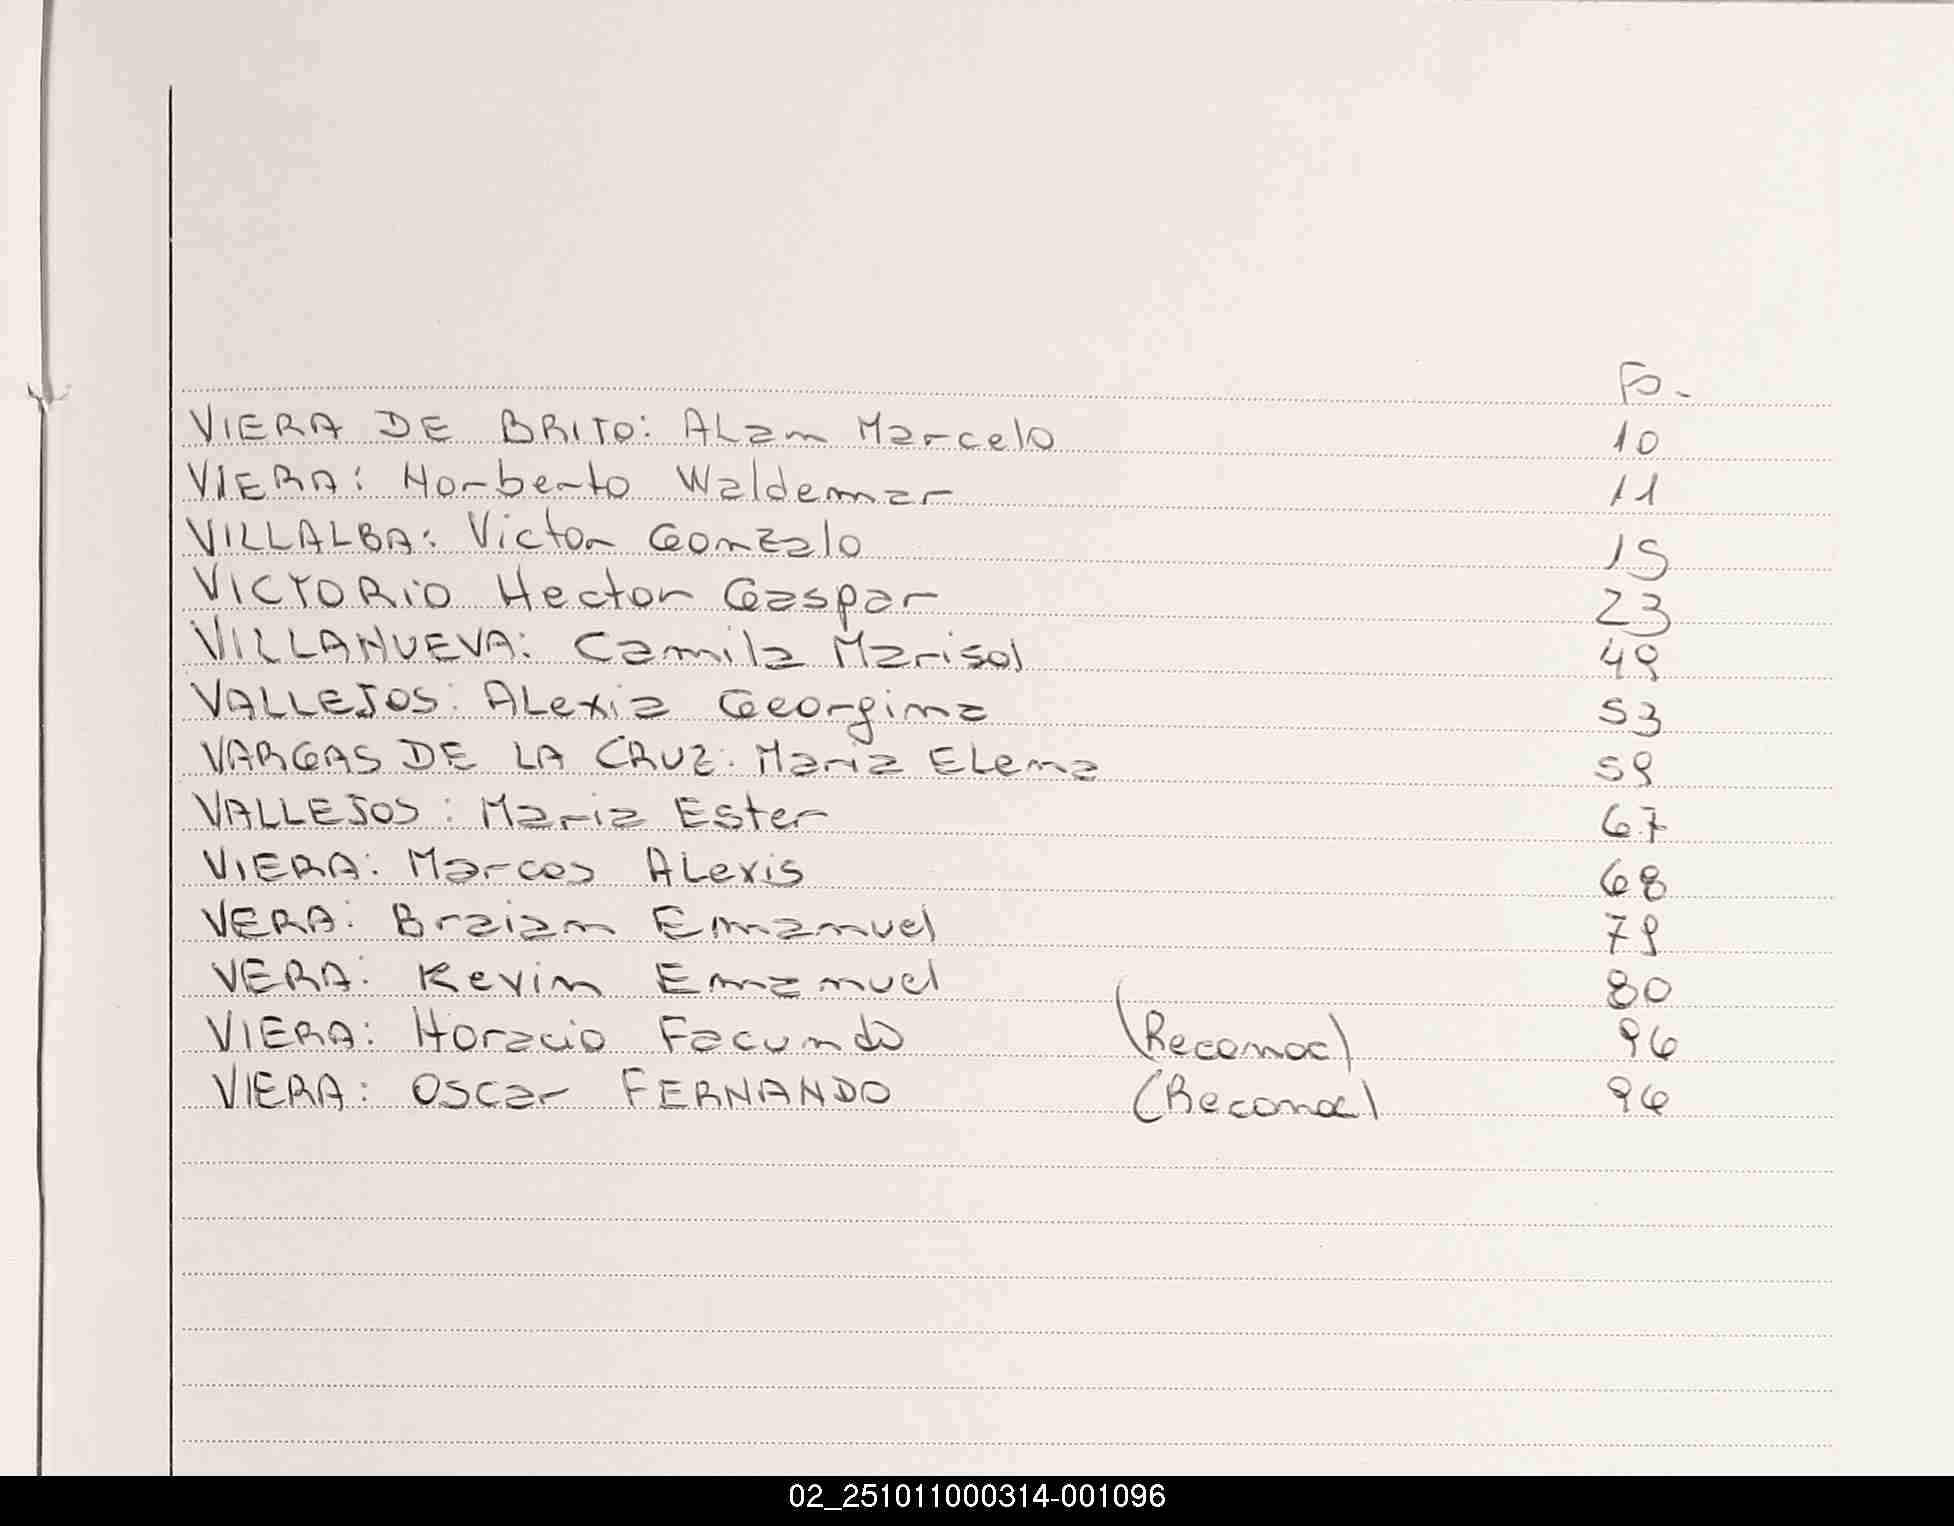 Fo.
VIERA DE BRITO: ALan Marcelo 10
VIERA: Norberto Waldemar 11
VILLALBA: Victor Gonzalo 15
VICTORIO Hector Gaspar 23
VILLANUEVA: Camila Marisol 49
VALLEJOS: ALexia Georgina 53
VARGAS DE LA CRUZ: Maria ELena 59
VALLEJOS: Maria Ester 67
VIERA: Marcos ALexis 68
VERA: Braian Emanuel 79
VERA: Kevin Emanuel 80
VIERA: Horacio Facundo (Reconoc) 96
VIERA: Oscar FERNANDO (Reconoc) 96
02_251011000314-001096